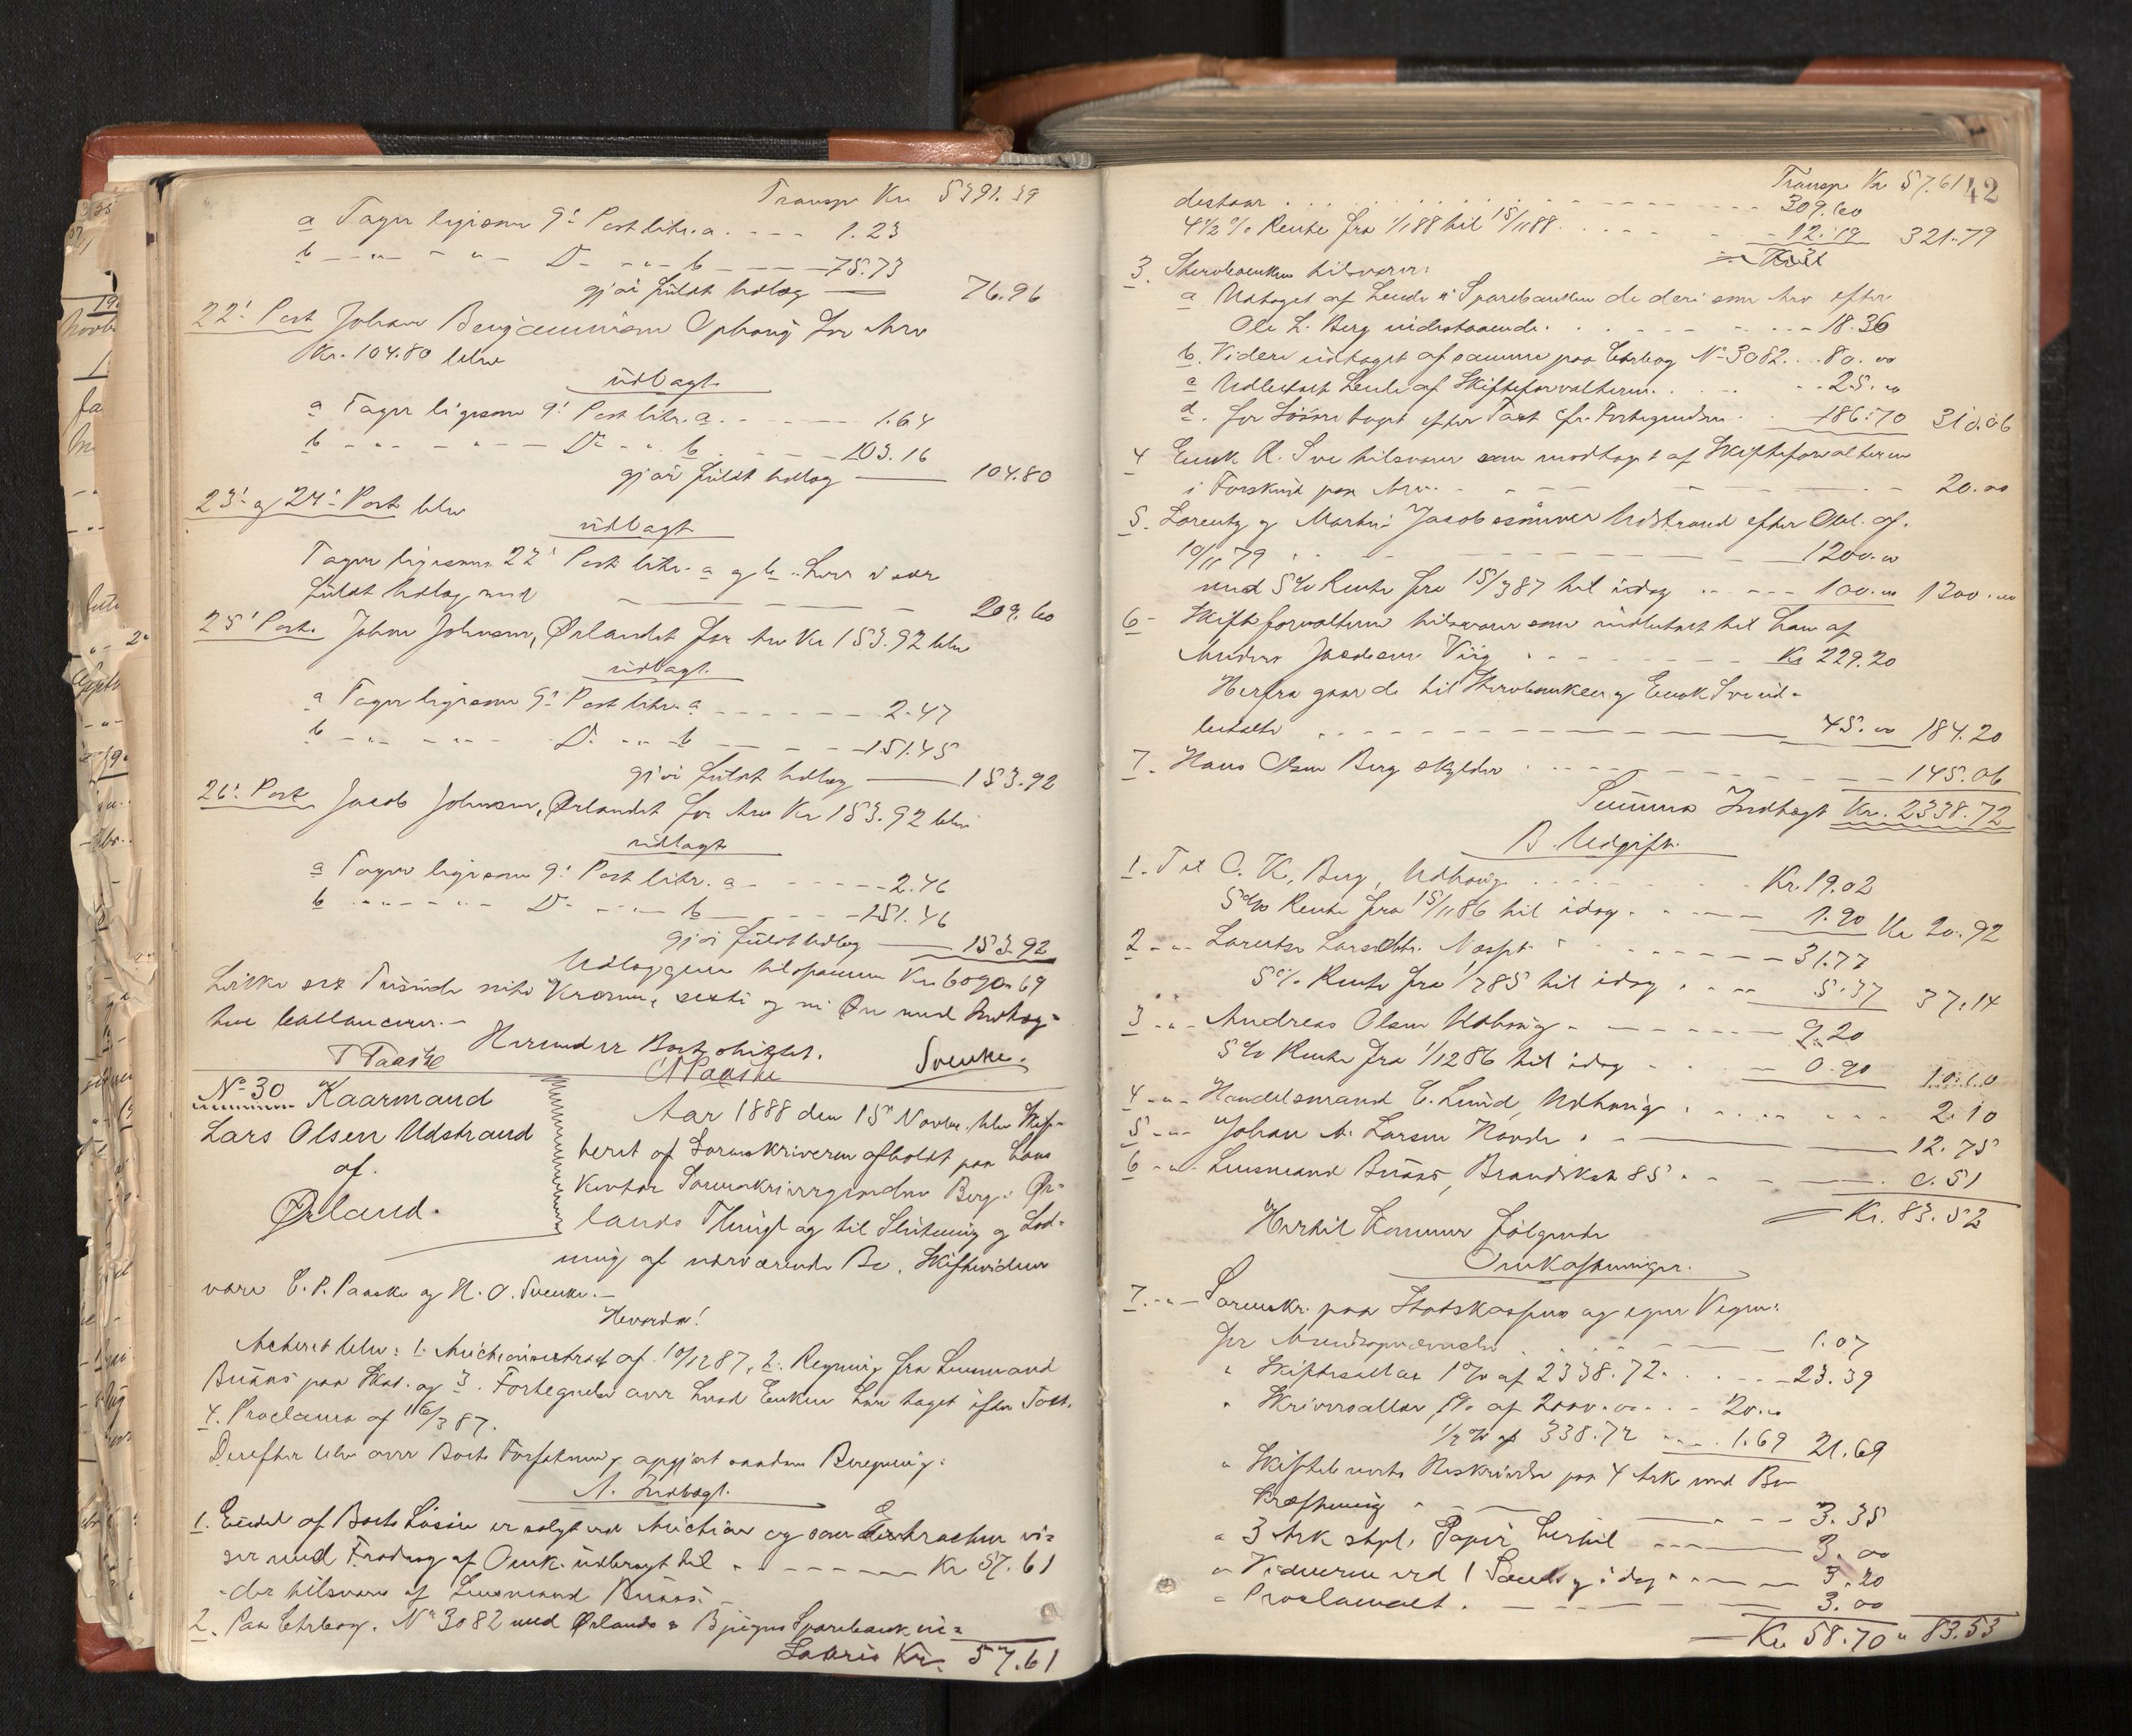 Transp Kr. 5391.39
a Tager ligesom 9' Post litr. a. - - - 1.23
b - - " - - " - Do - " - b - - - 75.73
gjør fuldt Udlæg — 76.96
22' Post Johan Benjaminsen Ophaug for Arv
Kr. 104.80 blev
udlagt
a Tager ligesom 9' Post litr. a. - - - 1.64
b - - " - - " - Do - " - b - - - 103.16
gjør fuldt Udlæg — 104.80
23' og 24' Post blev
udlagt
Tager ligesom 22' Post litr. a og b. hver især
fuldt Udlæg med - - - 209.60
25' Post. Johan Johnsen, Ørlandet for Arv Kr 153.92 blev
udlagt.
a Tager ligesom 9' Post litr. a - - - 2.47
b - - " - - " - Do - " - b - - - 151.45
gjør fuldt Udlæg — 153.92
26' Post Jacob Johnsen, Ørlandet for Arv Kr 153.92 blev
udlagt
a Tager ligesom 9' Post litr. a - - - 2.46
b - - " - - " - Do - " - b - - - 151.46
gjør fuldt Udlæg — 153.92
Udlæggene tilsammen Kr. 6090.69
hvilke sex Tusinde niti Kroner, sexti og ni Øre med Indtæg=
tene ballancerer.-
Hermed er Boet sluttet.
T Paaske C P Paaske Svenke.
No 30 Kaarmand
Lars Olsen Udstrand
af
Ørland.
Aar 1888 den 15' Novbr. blev Skif-
teret af Sorenskriveren afholdt paa hans
Kontor Sorenskrivergaarden Berg i Ør-
lands Thingl. og til Slutning og Lod-
ning af nærværende Bo. Skiftevidner
vare C. P. Paaske og H. O. Svenke.-
Hvorda!
Acteret blev: 1. Auctionsextract af 10/12 87, 2. Regning fra Lensmand
Buaas paa Skat. og 3. Fortegnelse over hvad Enken har taget efter Taxt.
4. Proclama af 16/3 87.
Derefter blev over Boets Forfatning opgjort saadan Beregning:
A. Indtægt.
1. Endel af Boets Løsøre er solgt ved Auction og som Extracten vi=
ser med Fradrag af Omk. udbragt til - - - Kr 57.61
- der tilsvares af Lensmand Buaas.-
2. Paa Ctrbog. No 3082 med Ørlands & Bjugns Sparebank in=
Lateris Kr. 57.61
Transp Kr 57.61 42
destaar - - - 309.60
4 1/2 % Rente fra 1/1 88 til 15/11 88. - - - 12.19 321.79
3. Sterboenken tilsvarer:
a Udtaget af hende i Sparebanken de deri som Arv efter
Ole L. Berg indestaaende. - - - 18.36
b. Videre udtaget af samme paa Ctrbog No 3082.... 80.00
c Udbetalt hende af Skifteforvalteren. - - - 25.00
d. for Løsøre taget efter Taxt cfr. Fortegnelsen. - 186.70 310.06
4 Enok L. Sve tilsvarer som modtaget af Skifteforvalteren
i Forskud paa Arv. - - - 20.00
5. Lorentz og Martin Jacobssønner Udstrand efter Obl. af.
10/11 79 - - - 1200.00
med 5% Rente fra 15/3 87 til idag - - - 100.00 1300.00
6 - Skifteforvalteren tilsvarer som indbetalt til ham af
Anders Jacobsen Viig - - - Kr 229.20
Herfra gaar de til Sterboenken og Enok Sve ud-
betalte - - - 45.00 184.20
7. Hans Olsen Berg skylder - - - 145.06
Summa Indtægt Kr. 2338.72
B. Udgift.
1. Til O. K. Berg, Udhaug - - - Kr. 19.02
5% Rente fra 15/11 86 til idag. - - - 1.90 Kr 20.92
2 - " - Lorentse Larsdttr. - - - 31.77
5% Rente fra 1/7 85 til idag. - - - 5.37 37.14
3 - " - Andreas Olsen Udhaug - - - 9.20
5% Rente fra 1/12 86 til idag - - - 0.90 10.10
4 - " - Handelsmand C. Lund, Udhaug. - - - 2.10
5 - " - Johan A. Larsen - - - 12.75
6 - " - Lensmand Buaas, Brandskat 85. - - - 0.51
Kr. 83.52
Hertil kommer følgende
Omkostninger.
7. - " - Sorenskr. paa Statskassens og egne Vegne:
for - - - 1.07
" Skiftesallær 1% af 2338.72. - - - 23.39
" Skriversallær 1% af 2000.00 - - 20.00
1/2 % af 338.72 - - - 1.69 21.69
" Skiftebrevets Beskrivelse paa 4 Ark med Be-
kræftning - - - 3.35
" 3 Ark stpl. Papir hertil - - - 3.00
" Vidnerne ved 1 Saml. og idag - - - 3.20
" Proclamaet. - - - 3.00
Kr. 58.70 " 83.53